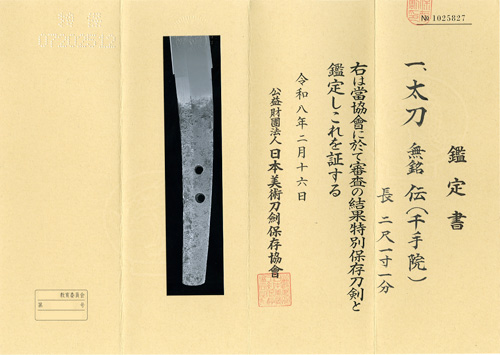 № 1025827
鑑定書
一、太刀 無銘 伝(千手院)
長 二尺一寸一分
右は當協會に於て審査の結果特別保存刀剣と
鑑定しこれを証する
令和八年二月十六日
公益財團法人 日本美術刀剣保存協會
教育委員会
第 号